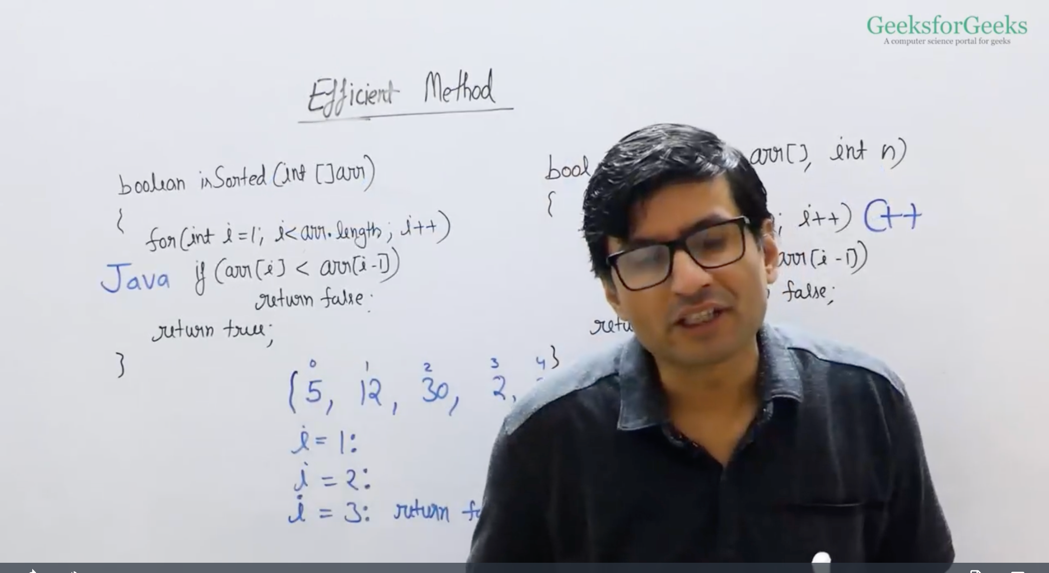 GeeksforGeeks
A computer science portal for geeks
Efficient Method
boolean isSorted (int []arr)
{
for(int i=1; i<arr.length; i++)
Java if (arr[i] < arr[i-1])
return false;
return true;
}
bool arr[], int n)
{
; i++) C++
arr[i-1])
false;
}
0 1 2 3 4
{5, 12, 30, 2,
i = 1:
i = 2:
i = 3: return